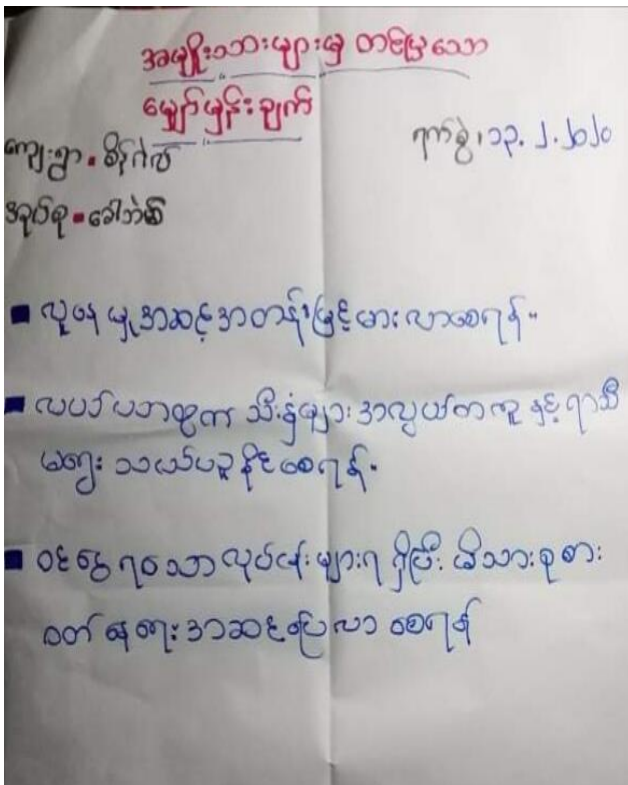 အမျိုးသားများမှ တင်ပြသော
မျှော်မှန်းချက်
ရက်စွဲ၊ ၁၃.၂.၂၀၂၀
ကျေးရွာ - စိန်ဂဲလ်
အုပ်စု - ခေါဘဲမ်
လူနေမှုအဆင့်အတန်းမြင့်မားလာစေရန်။
လပပ်ပဘက္ထက သီးနှံများ အလွယ်တကူ နှင့် ရာသီ
မရွေး သယ်ယူနိုင်စေရန်။
ဝင်ငွေရသောလုပ်ငန်းများရရှိပြီး မိသားစုစား
ဝတ်နေရေးအဆင်ပြေလာစေရန်